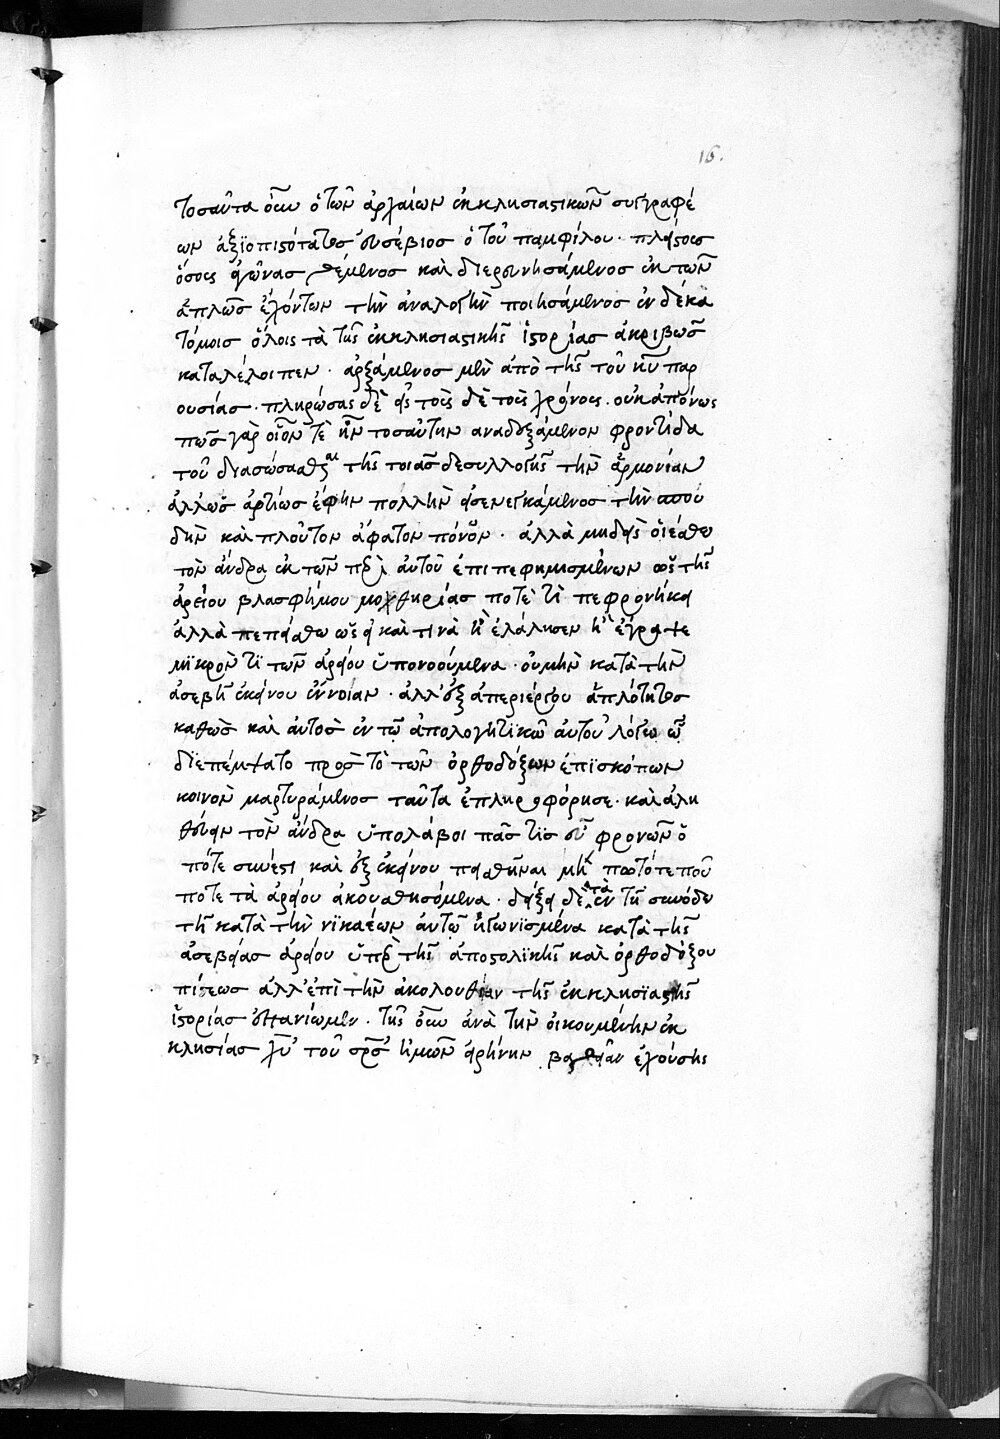 15.
τοσαῦτα οὖν ὁ τῶν ἀρχαίων ἐκκλησιαστικῶν συγγραφέ
ων ἀξϊοπιστότατος εὐσέβιος ὁ τοῦ παμφίλου · πλείστους
ὅσους ἀγῶνας θέμενος καὶ διερευνησάμενος ἐκ τῶν
ἁπλῶς ἐχόντων τὴν ἀναλογὴν ποιησάμενος ἐν δέκα
τόμοις ὅλοις τὰ τῆς ἐκκλησιαστικῆς ἱστορίας ἀκριβῶς
καταλέλοιπεν · ἀρξάμενος μὲν ἀπὸ τῆς τοῦ κυ παρ
ουσίας · πληρώσας δὲ εἰς τοὺς δὲ τοὺς χρόνους · οὐκ ἀπόνως
πῶς γὰρ οἷον τὲ ἦν τοσαύτην αναδεξάμενον φροντίδα
τοῦ διασώσασθαι τῆς τοιᾶσδε συλλογῆς τὴν ἁρμονίαν
ἀλλ ὡς ἀρτίως ἔφην πολλὴν εἰσενεγκάμενος τὴν σπου
δὴν καὶ πλοῦτον ἀφατον πόνον · ἀλλὰ μηδεὶς οἰέσθω
τὸν ἄνδρα ἐκ τῶν περὶ αὐτοῦ ἐπιπεφημισμένων ὡς τῆς
ἀρείου βλασφήμου μοχθηρίας ποτέ τὶ πεφρονήκει
ἀλλὰ πεπείσθω ὡς εἰ καὶ τινὰ ἢ ἐλάλησεν ἢ ἔγραψε
μϊκρὸν τϊ τῶν ἀρείου ὑπονοούμενα · οὐ μὴν κατὰ τὴν
ἀσεβῆ ἐκείνου ἔννοιαν · ἀλλ' ἐξ ἀπεριέργου ἁπλότητος
καθὼς καὶ αὐτὸς ἐν τῷ ἀπολογητϊκῶ αὐτοῦ λόγῳ ὧ
διεπέμψατο πρὸς τὸ τῶν ὀρθοδόξων ἐπϊσκόπων
κοινὸν μαρτυράμενος ταῦτα ἐπληροφόρησε · καὶ ἀλη
θεύειν τὸν ἄνδρα ὑπολάβοι πᾶς τϊς εὖ φρονῶν ὅ
πότε συνέστι καὶ ἐξ ἐκείνου πεισθῆναι μὴ πώποτέ που
ποτε τὰ ἀρείου ἀκουσθησόμενα · δείξει δὲ τὰ ἐν τῇ συνόδω
τῆ κατὰ τὴν νϊκαέων αὐτῶ ἠγωνϊσμένα κατὰ τῆς
ἀσεβείας ἀρείου ὑπὲρ τῆς ἀποστολϊκῆς καὶ ὀρθοδόξου
πίστεως ἀλλ' ἐπὶ τὴν ἀκολουθίαν τῆς ἐκκλησϊαστικῆς
ἱστορίας ἐπανίωμεν · τῆς οὖν ἀνὰ τὴν οἰκουμένην ἐκ
κλησίας χυ τοῦ σρς ἡμῶν εἰρήνην βαθεῖαν ἐχούσης